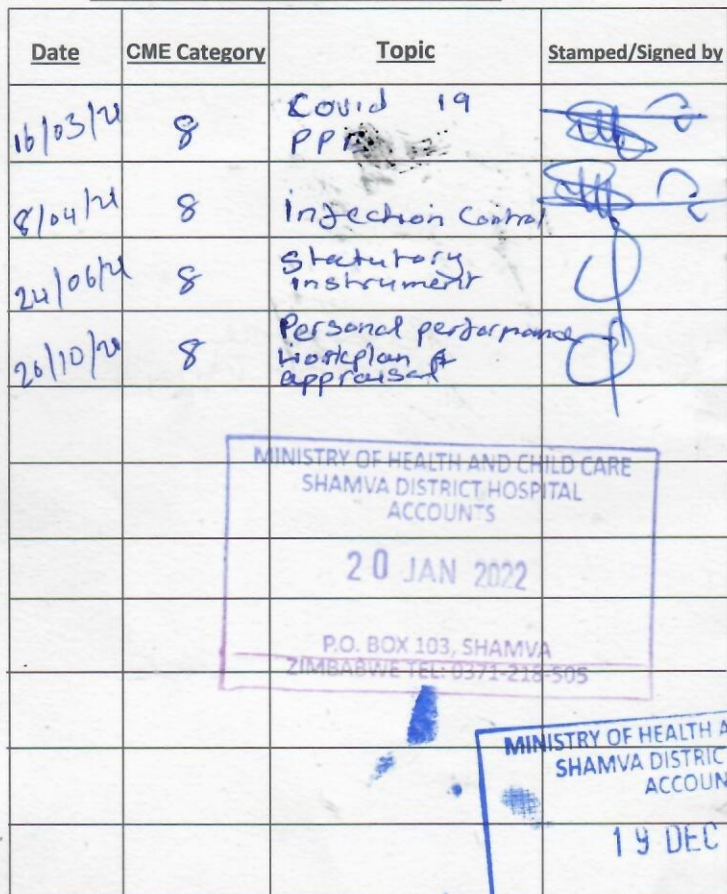 Date CME Category Topic Stamped/Signed by
16/03/21 8 Covid 19
PPE
8/04/21 8 Infection Control
24/06/21 8 Statutory
instrument
26/10/21 8 Personal performance
workplan &
appraisal
MINISTRY OF HEALTH AND CHILD CARE
SHAMVA DISTRICT HOSPITAL
ACCOUNTS
20 JAN 2022
P.O. BOX 103, SHAMVA
ZIMBABWE TEL: 0371-218-505
MINISTRY OF HEALTH A
SHAMVA DISTRIC
ACCOUN
19 DEC